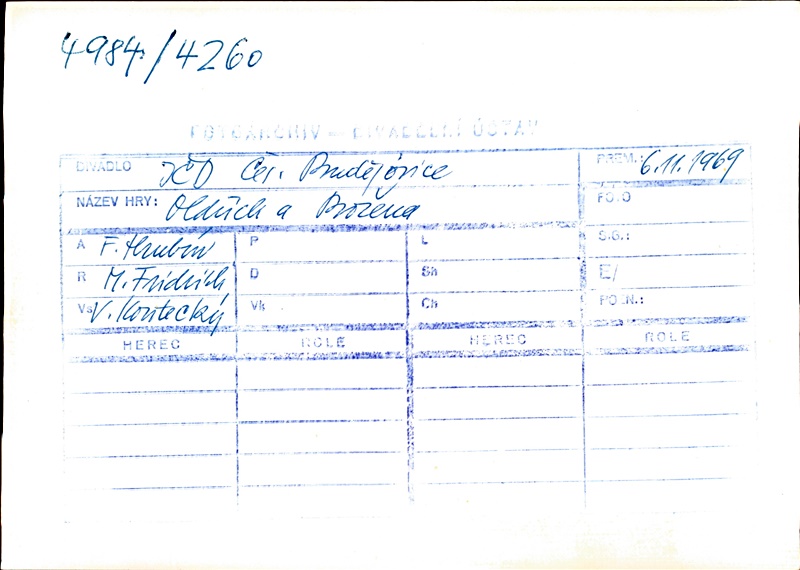 4984/4260
FOTOARCHIV – DIVADELNÍ ÚSTAV
DIVADLO JČD Čes. Budějovice PREM.: 6.11.1969
NÁZEV HRY: Oldřich a Božena FO.O
A F. Hrubín P L S.G.:
R M. Fridrich D Sh E/
Vs V. Kontecký Vk Ch PO.N.:
HEREC ROLE HEREC ROLE